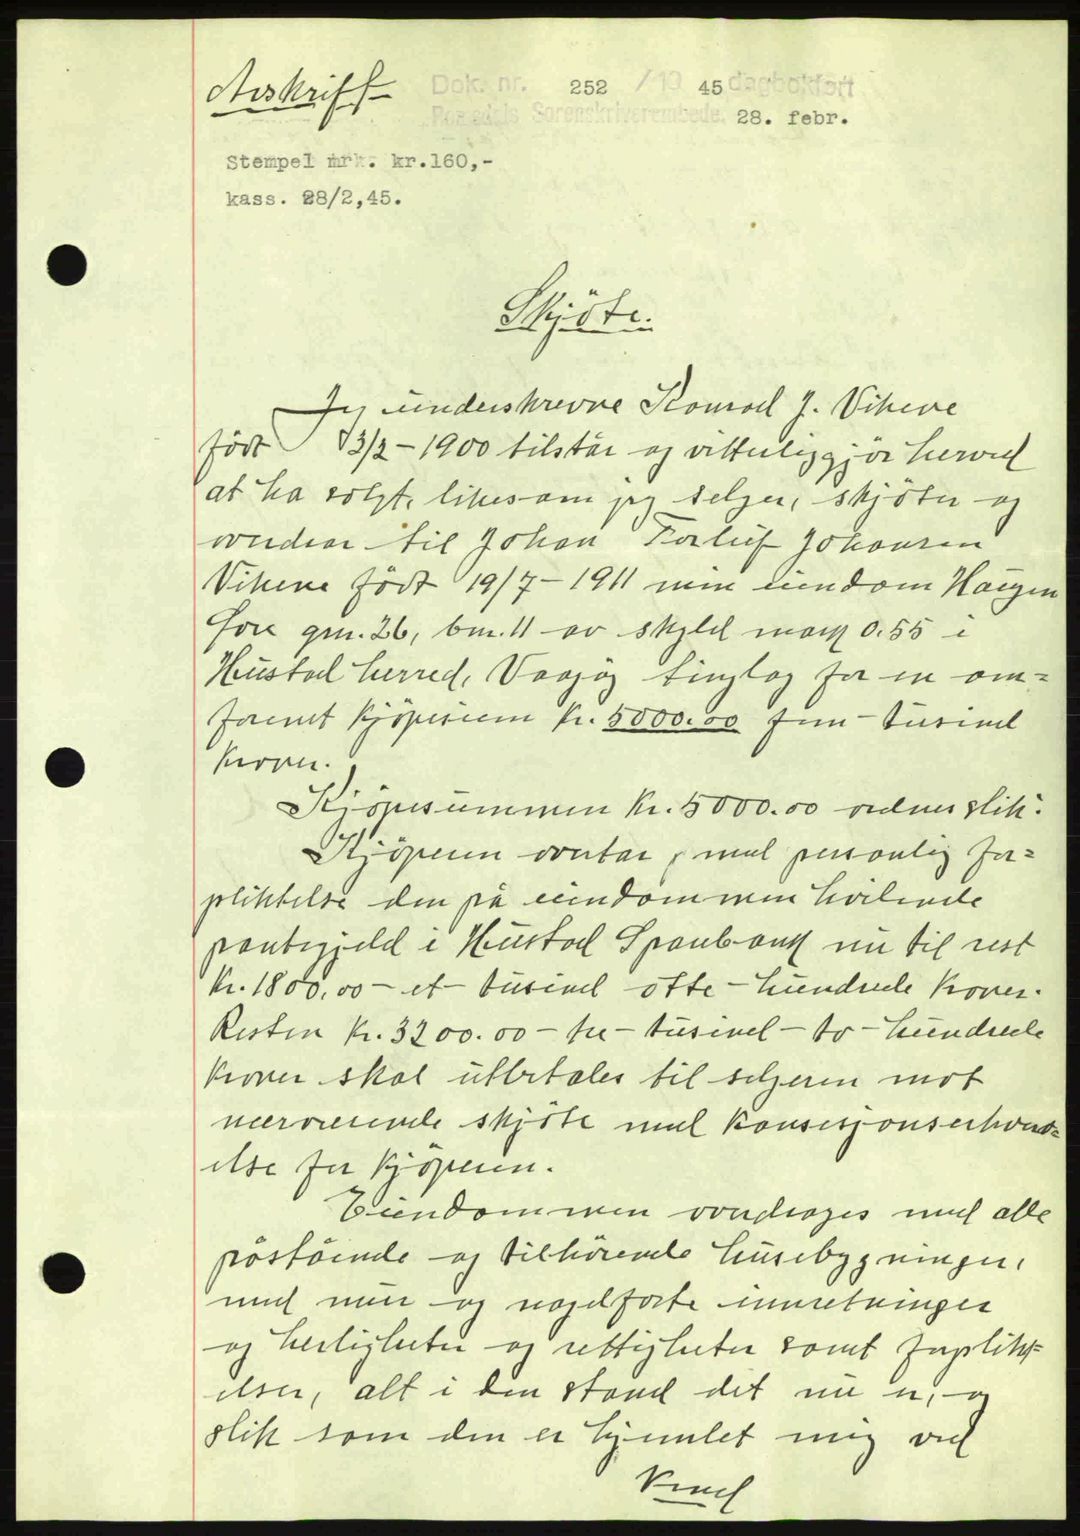 Avskrift
Dok. nr. 252 / 19 45 dagbokført
Romsdals Sorenskriverembede. 28. febr.
Stempel mrk. kr.160,-
kass. 28/2,45.
Skjöte.
Jeg underskrevne Konrad J. Vikene
födt 3/2-1900 tilstår og vitterliggjör herved
at ha solgt, likesom jeg selger, skjöter og
overdrar til Johan Torleif Johansen
Vikene födt 19/7-1911 min eiendom Haugen
Gnr. 26, bnr. 11 av skyld mark 0.55 i
Hustad herred, Vaagöy tinglag for en om=
forenet kjöpesum kr. 5000.00 fem-tusind
kroner.
Kjöpesummen kr. 5000.00 ordnes slik:
Kjöperen overtar med personlig for=
pliktelse den på eiendommen hvilende
pantegjeld i Hustad Sparebank nu til rest
kr. 1800,00 - et tusind otte-hundrede kroner.
Resten kr. 3200.00 - tre-tusind-to-hundrede
kroner skal utbetales til selgeren mot
nærværende skjöte med konsesjonserhverv=
else for kjöperen.
Eiendommen overdrages med alle
påstående og tilhörende husebygninger,
med mur og nagelfaste innretninger
og herligheter og rettigheter samt forplikt=
elser, alt i den stand det nu er, og
slik som den er hjemlet mig ved
Vend